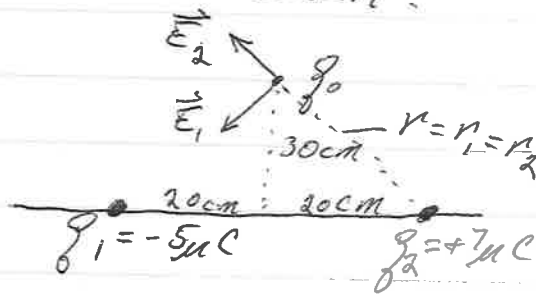 E₂
q₀
E₁
r = r₁ = r₂
30cm
20cm 20cm
q₁ = -5μC
q₂ = +7μC